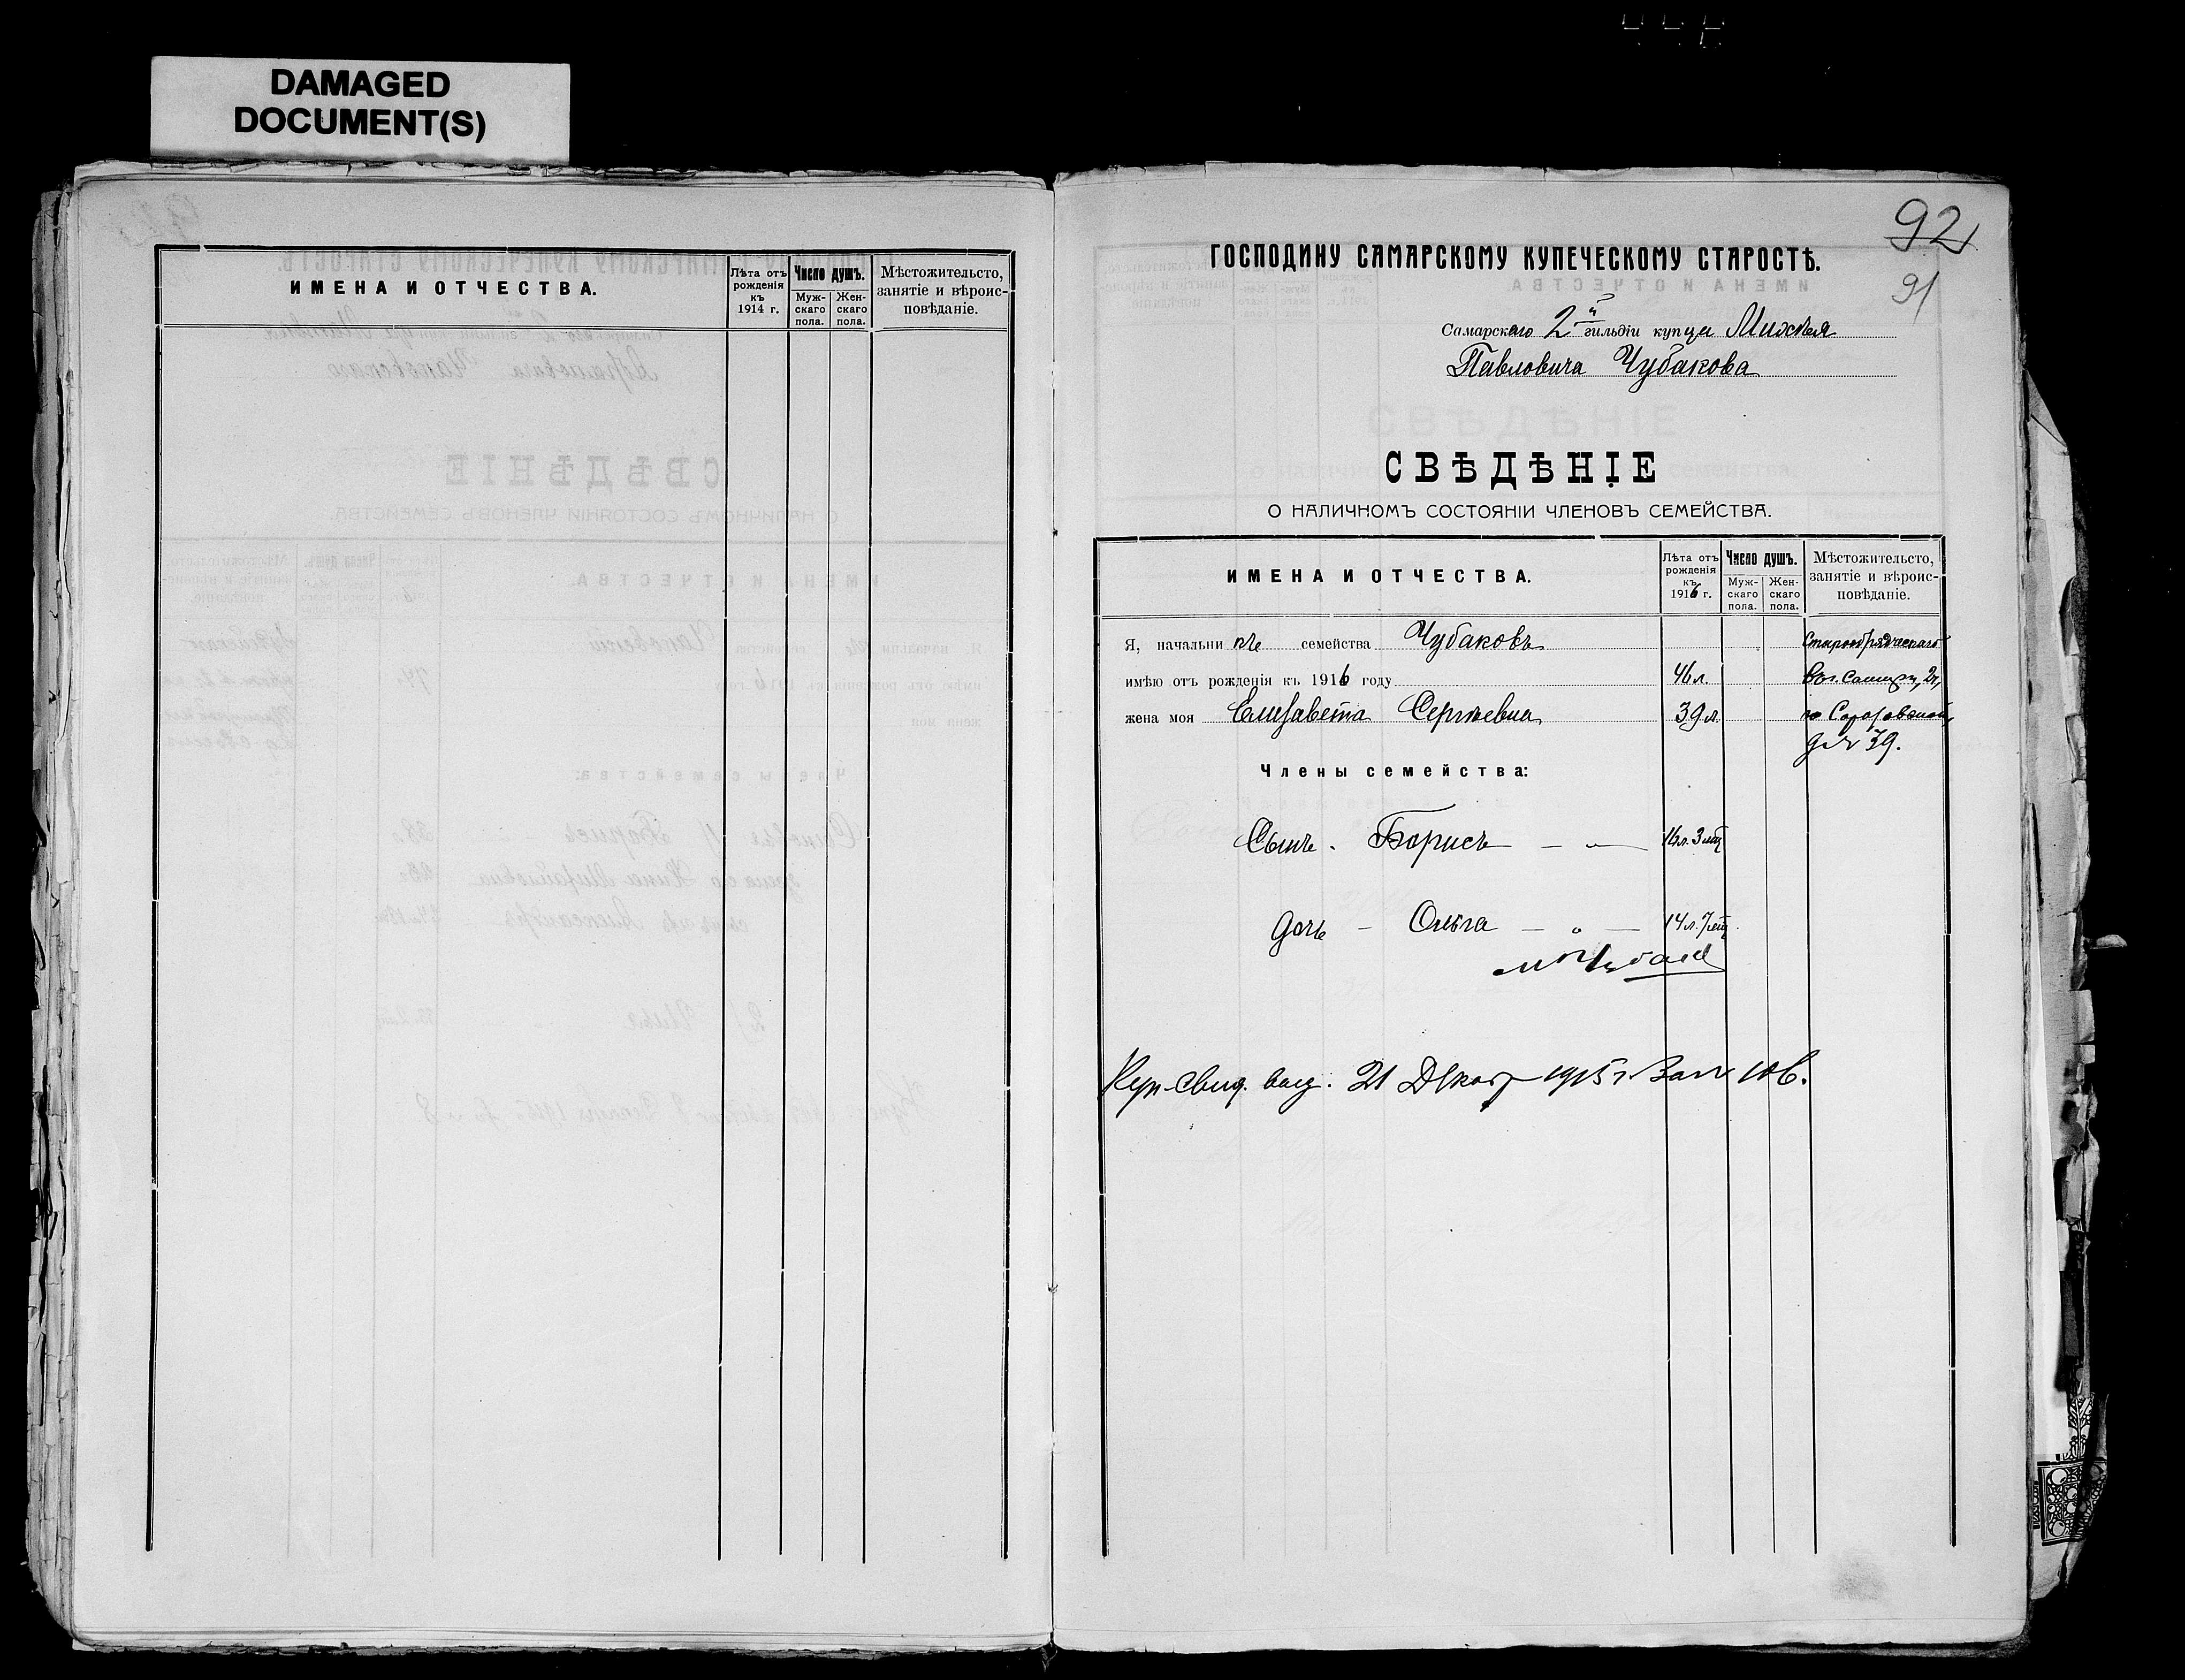 DAMAGED
DOCUMENT(S)
ИМЕНА И ОТЧЕСТВА.
Лѣта отъ рожденія къ 1914 г.
Число душъ.
Муж-скаго пола.
Жен-скаго пола.
Мѣстожительсто,
занятіе и вѣроис-
повѣданіе.
92
91
ГОСПОДИНУ САМАРСКОМУ КУПЕЧЕСКОМУ СТАРОСТѢ.
Самарскаго 2й гильдіи купца
Павловича Чубакова
СВѢДѢНІЕ
О НАЛИЧНОМЪ СОСТОЯНІИ ЧЛЕНОВЪ СЕМЕЙСТВА.
ИМЕНА И ОТЧЕСТВА.
Лѣта отъ рожденія къ 1916 г.
Число душъ.
Муж-скаго пола.
Жен-скаго пола.
Мѣстожительсто,
занятіе и вѣроис-
повѣданіе.
Я, начальникъ семейства Чубаковъ
имѣю отъ рожденія къ 1916 году 46 л.
жена моя Елизавета Сергѣевна 39 л.
39.
Члены семейства:
Сынъ. Борисъ — " — 16 л. 3 мц
дочь — Ольга — " — 14 л. 7 мц
21 Декабр 1915 г.